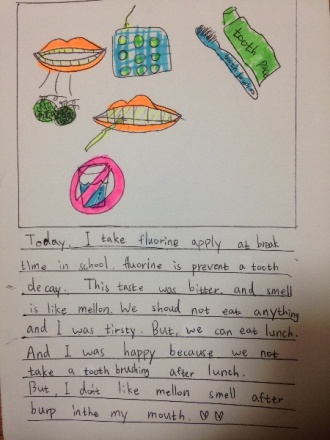 tooth Pa
toothbrush
Today, I take fluorine apply at break
time in school. fluorine is prevent a tooth
decay. This taste was bitter, and smell
is like mellon. We shoud not eat anything
and I was tirsty. But, we can eat lunch.
And I was happy because we not
take a tooth brushing after lunch.
But, I don't like mellon smell after
burp inthe my mouth. ♡♡